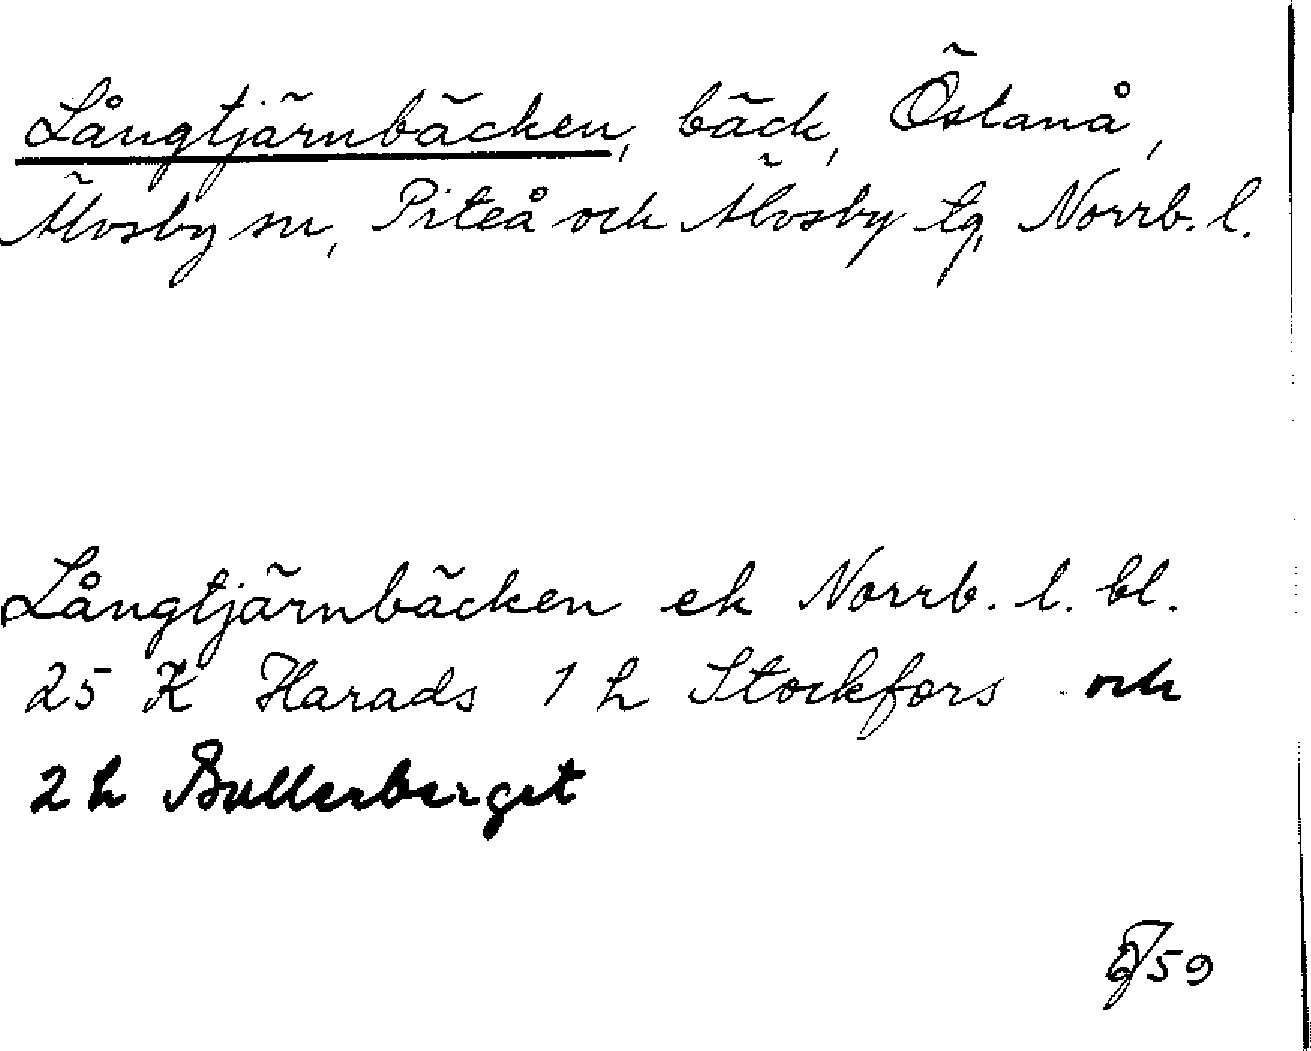 Långtjärnbäcken, bäck, Östanå,
Älvsby sn, Piteå och Älvsby tg, Norrb. l.
Långtjärnbäcken ek Norrb. l. bl.
25 K Harads 1 h Stockfors och
2 h Bullerberget
59